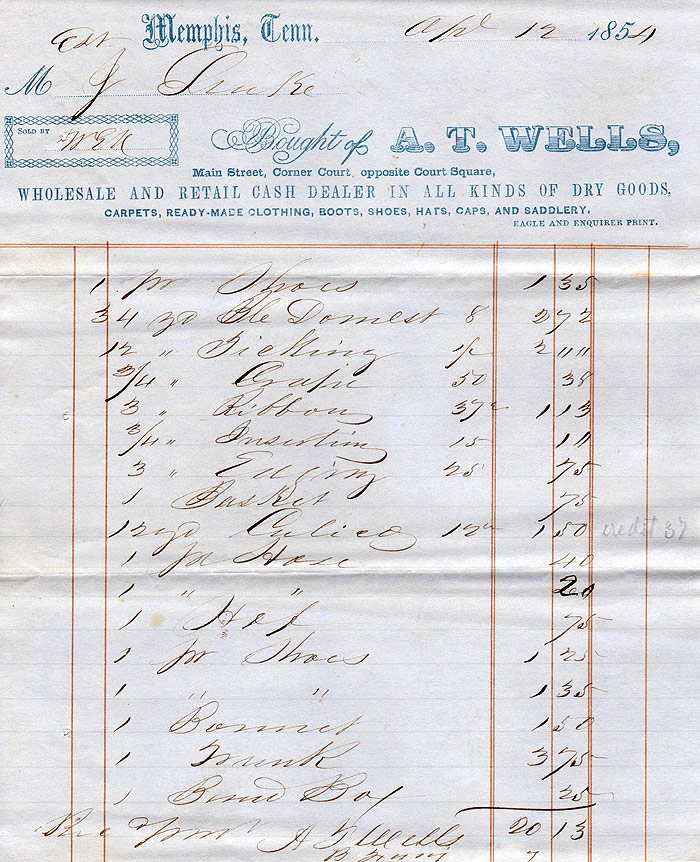 Memphis, Tenn. Apl 12 1854
M J
SOLD BY
Bought of A. T. WELLS,
Main Street, Corner Court, opposite Court Square,
WHOLESALE AND RETAIL CASH DEALER IN ALL KINDS OF DRY GOODS,
CARPETS, READY-MADE CLOTHING, BOOTS, SHOES, HATS, CAPS, AND SADDLERY.
EAGLE AND ENQUIRER PRINT.
1 pr Shoes 1 35
34 yd Ble Domest 8 2 72
12 " Ticking 2 " "
3/4 " Crape 50 38
3 " Ribbon 37 1 13
3/4 " Inserting 15 11
3 " Edging 25 75
1 Basket 75
12 yd Calico 12 1 50 credit 37
1 pr Hose 40
1 " " 20
1 75
1 pr Shoes 1 25
1 " " 1 35
1 Bonnet 1 50
1 Trunk 3 75
1 Band Box 25
Rec A T Wells 20 13